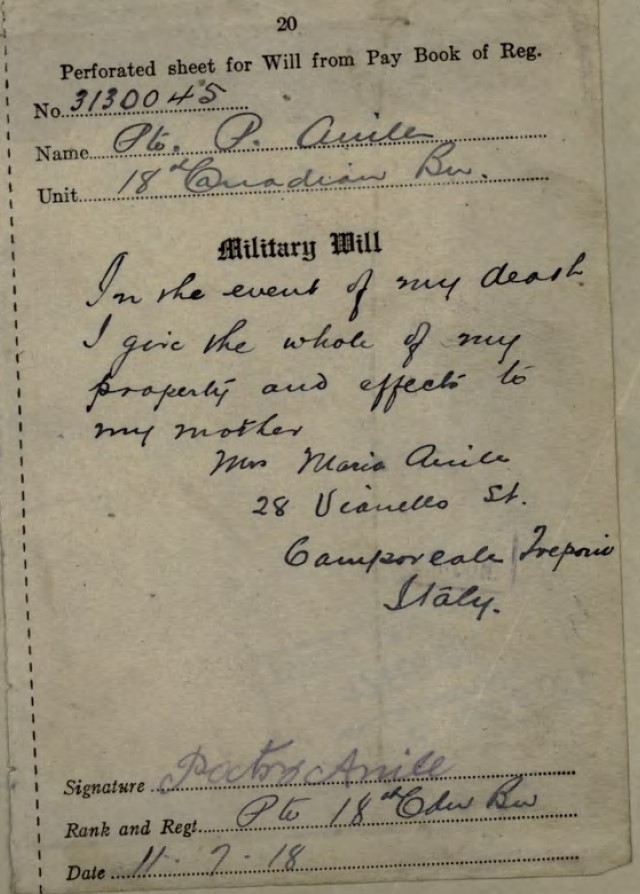 20
Perforated sheet for Will from Pay Book of Reg.
No. 3130045
Name Pte. P. Anile
Unit 18th Canadian Bn.
Military Will
In the event of my death
I give the whole of my
property and effects to
my mother
Mrs Maria Anile
28 Vianello St.
Camporeale
Italy.
Signature Anile
Rank and Regt. Pte 18th Cdn Bn
Date 11-7-18